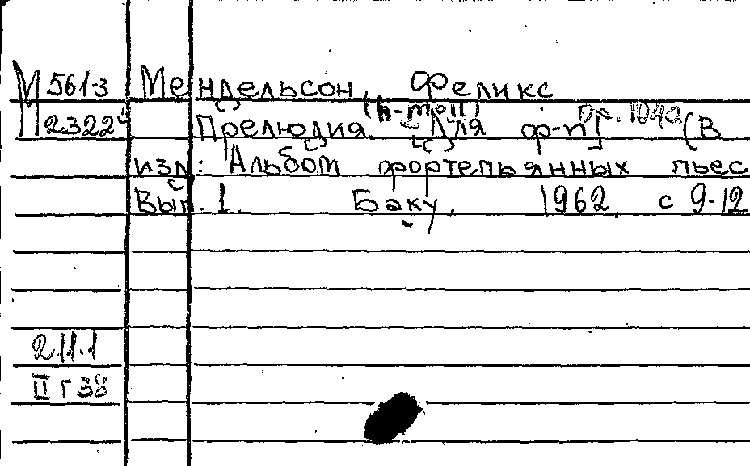 М 561-3 Мендельсон, Феликс
2322 (h-moll) Ор. 104а
Прелюдия. [Для ф-п] (В
изд: Альбом фортепьянных пьес
Вып. 1. Баку. 1962 с 9-12
2.11.1
II Г 38